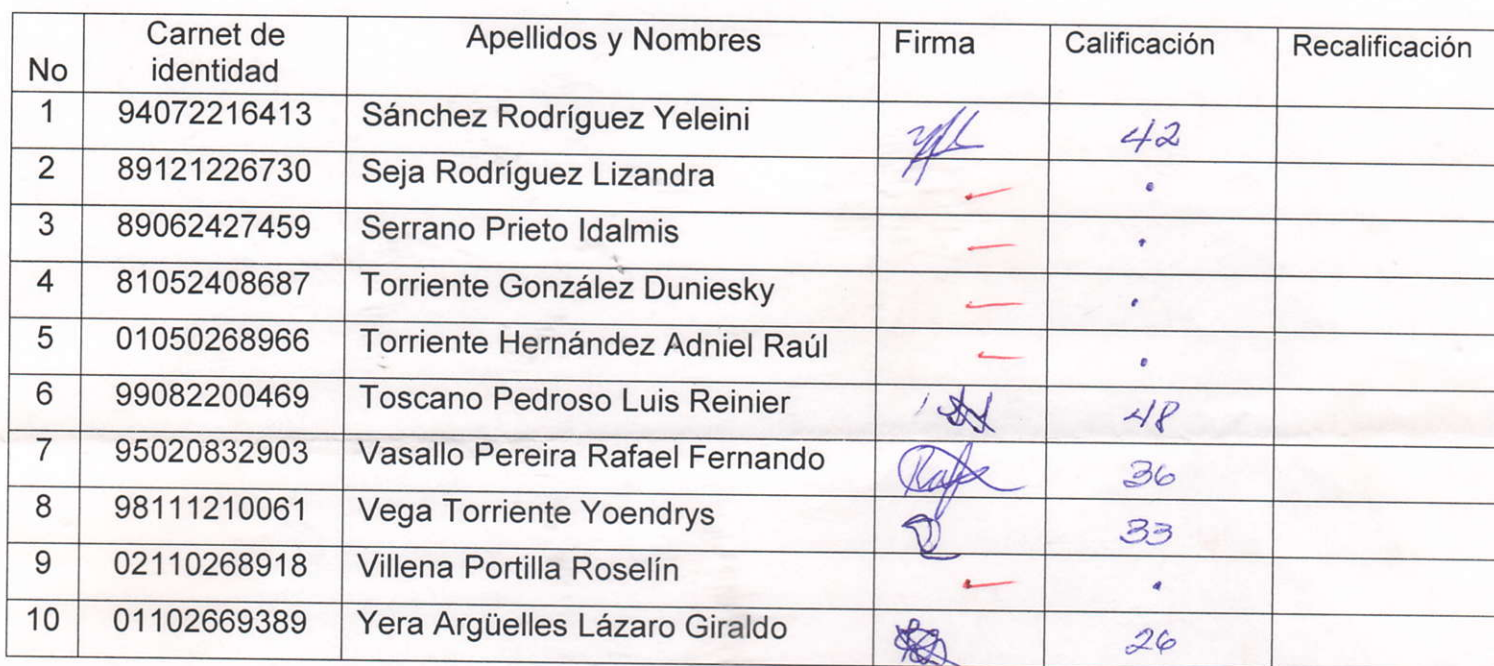 No Carnet de identidad Apellidos y Nombres Firma Calificación Recalificación
1 94072216413 Sánchez Rodríguez Yeleini 42
2 89121226730 Seja Rodríguez Lizandra
3 89062427459 Serrano Prieto Idalmis
4 81052408687 Torriente González Duniesky
5 01050268966 Torriente Hernández Adniel Raúl
6 99082200469 Toscano Pedroso Luis Reinier 48
7 95020832903 Vasallo Pereira Rafael Fernando 36
8 98111210061 Vega Torriente Yoendrys 33
9 02110268918 Villena Portilla Roselín
10 01102669389 Yera Argüelles Lázaro Giraldo 26